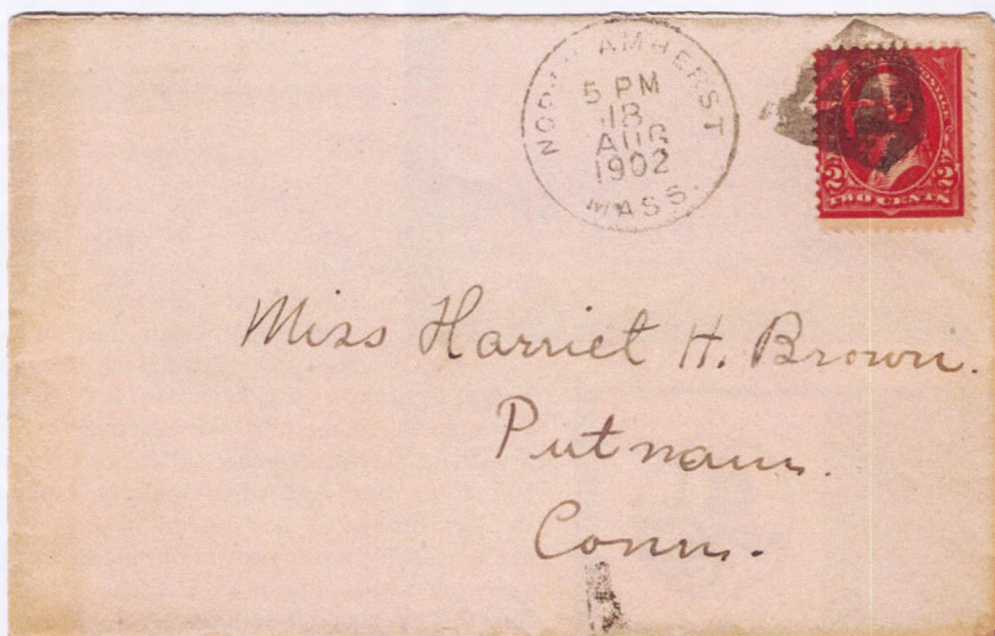 NORTH AMHERST
5 PM
18
AUG
1902
MASS.
2 2
TWO CENTS
Miss Harriet H. Brown.
Putnam.
Conn.